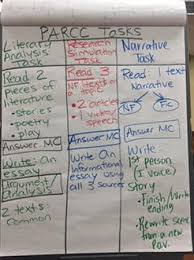 PARCC Tasks
Literary
Analysis Task
Read 2
pieces of
literature
• stories
• poetry
• play
Answer MC
Write: An
essay
Argument/analysis
2 texts:
common
Research
Simulation
Task
Read 3
NF texts on
a topic
• 2 articles
• 1 video/speech
Answer MC
Write An
informational
essay using
all 3 sources
Narrative
Task
Read: 1 text
Narrative
NF
Fic
Answer MC
Write:
1st person
(I voice)
Story
- Finish/Write
ending
- Rewrite scene
from a new
POV.